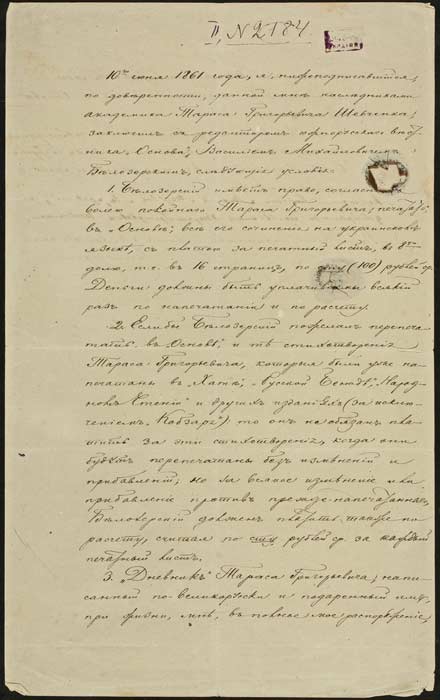 II, № 2184.
10го июня 1861 года, я, нижеподписавшійся,
по довѣренности, данной мнѣ наслѣдниками
академика Тараса Григорьевича Шевченка,
заключилъ съ редакторомъ
"Основа", Василіемъ Михайловичемъ
Бѣлозерскимъ, слѣдующія условія:
1. Бѣлозерскій имѣетъ право, согласно съ
волею покойнаго Тараса Григорьевича, печатать
въ "Основѣ" всѣ его сочиненія на украинскомъ
языкѣ, съ платою за печатный листъ, въ 8ую
долю, т. е. въ 16 страницъ, по сту (100) рублей ср.
Деньги должны быть уплачиваемы всякій
разъ по напечатаніи и по расчету.
2. Если бы Бѣлозерскій пожелалъ перепеча-
тать въ "Основѣ", и тѣ стихотворенія
Тараса Григорьевича, которыя были уже на-
печатаны въ "Хатѣ", "Руской Бесѣдѣ", "Народ-
номъ Чтеніи" и другихъ изданіяхъ (за исклю-
ченіемъ "Кобзаря") то онъ не обязанъ пла-
тить за эти стихотворенія, когда они
будутъ перепечатаны безъ измѣненій и
прибавленій; но за всякое измѣненіе или
прибавленіе противъ прежде напечатаннаго,
Бѣлозерскій долженъ платить также по
расчету, считая по сту рублей ср. за каждый
печатный листъ.
3. "Дневникъ" Тараса Григорьевича, напи-
санный по-великоруски и подаренный имъ,
при жизни, мнѣ, въ полное мое распоряженіе,